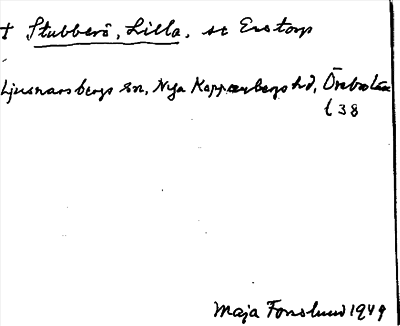 † Stubberö, Lilla, se Enstorp
Ljusnarsbergs sn, Nya Kopparbergs hd, Örebro län
l 38
Maja Fonslund 1949